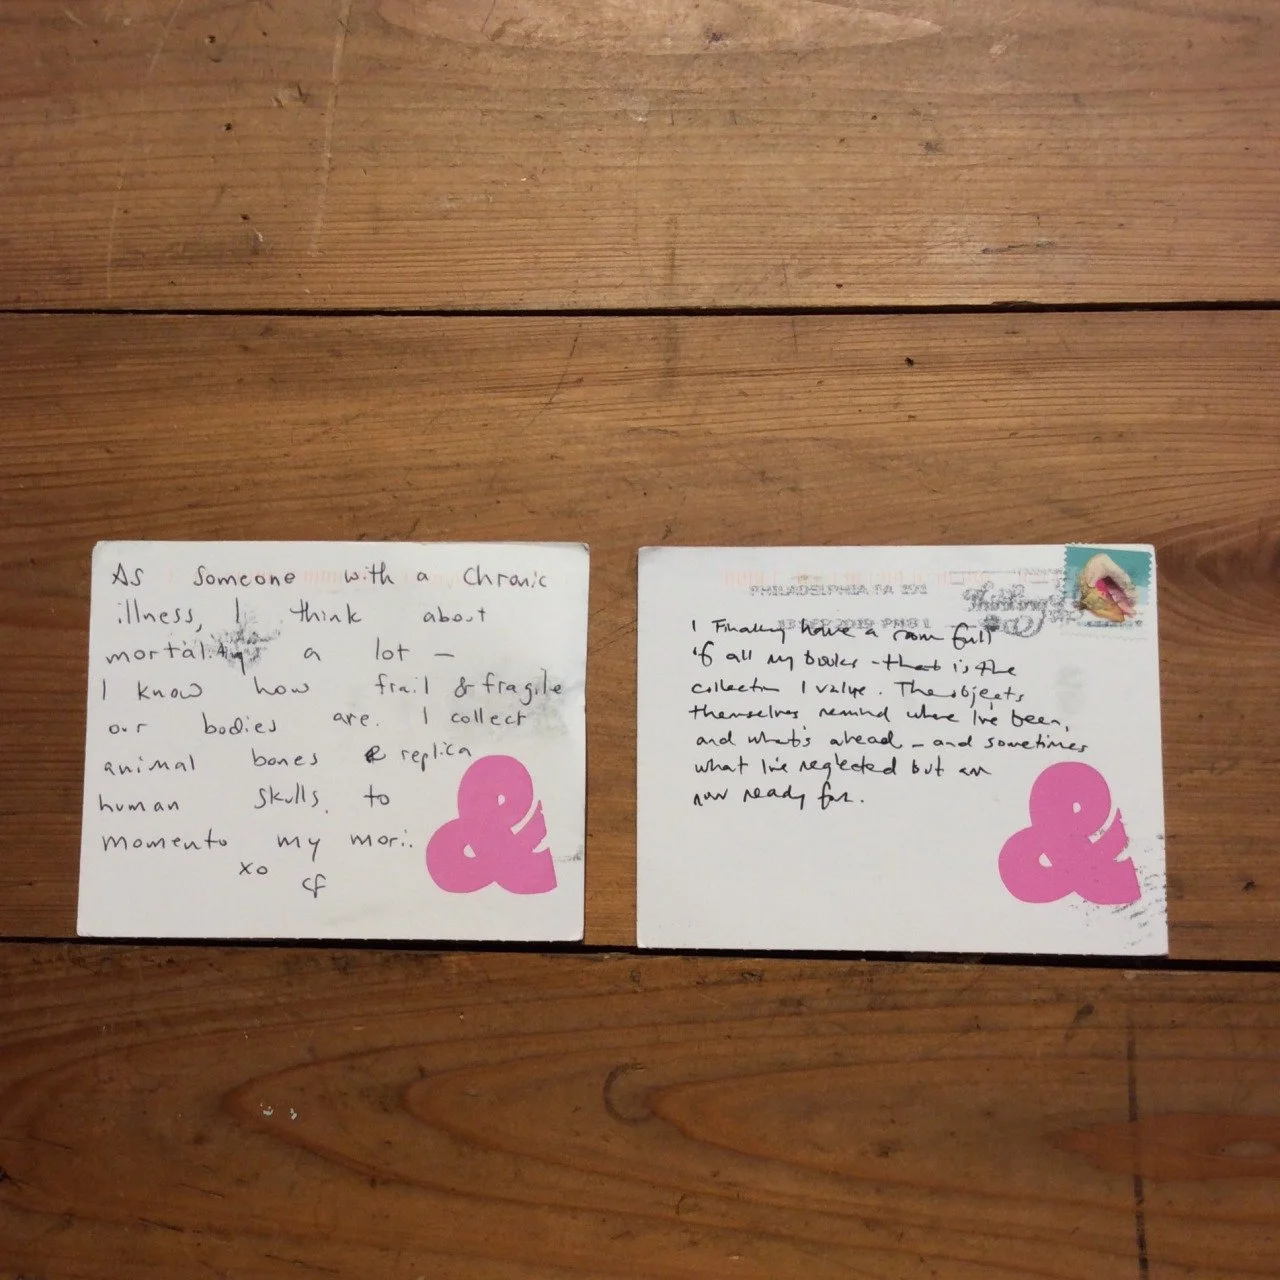 As someone with a chronic
illness, I think about
mortality a lot –
I know how frail & fragile
our bodies are. I collect
animal bones & replica
human skulls, to
momento my mori.
xo
cf
&
PHILADELPHIA PA 191
13 SEP 2019 PM 8 L
I Finally have a room full
of all my books – that is the
collection I value. The objects
themselves remind where I've been,
and what's ahead – and sometimes
what I've neglected but am
now ready for.
&